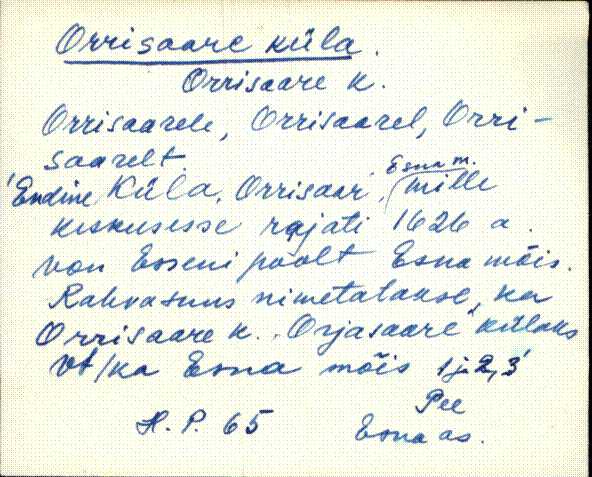 Orrisaare küla.
Orrisaare k.
Orrisaarele, Orrisaarel, Orri-
saarelt.
Esna m.
'Endine küla, Orrisaar, mille
keskusesse rajati 1626 a.
von Esseni poolt Esna mõis.
Rahvasuus nimetatakse ka
Orrisaare k. "Orjasaare" külaks
vt/ka Esna mõis 1 ja 2, 3'
Pee
H. P. 65 Esna as.